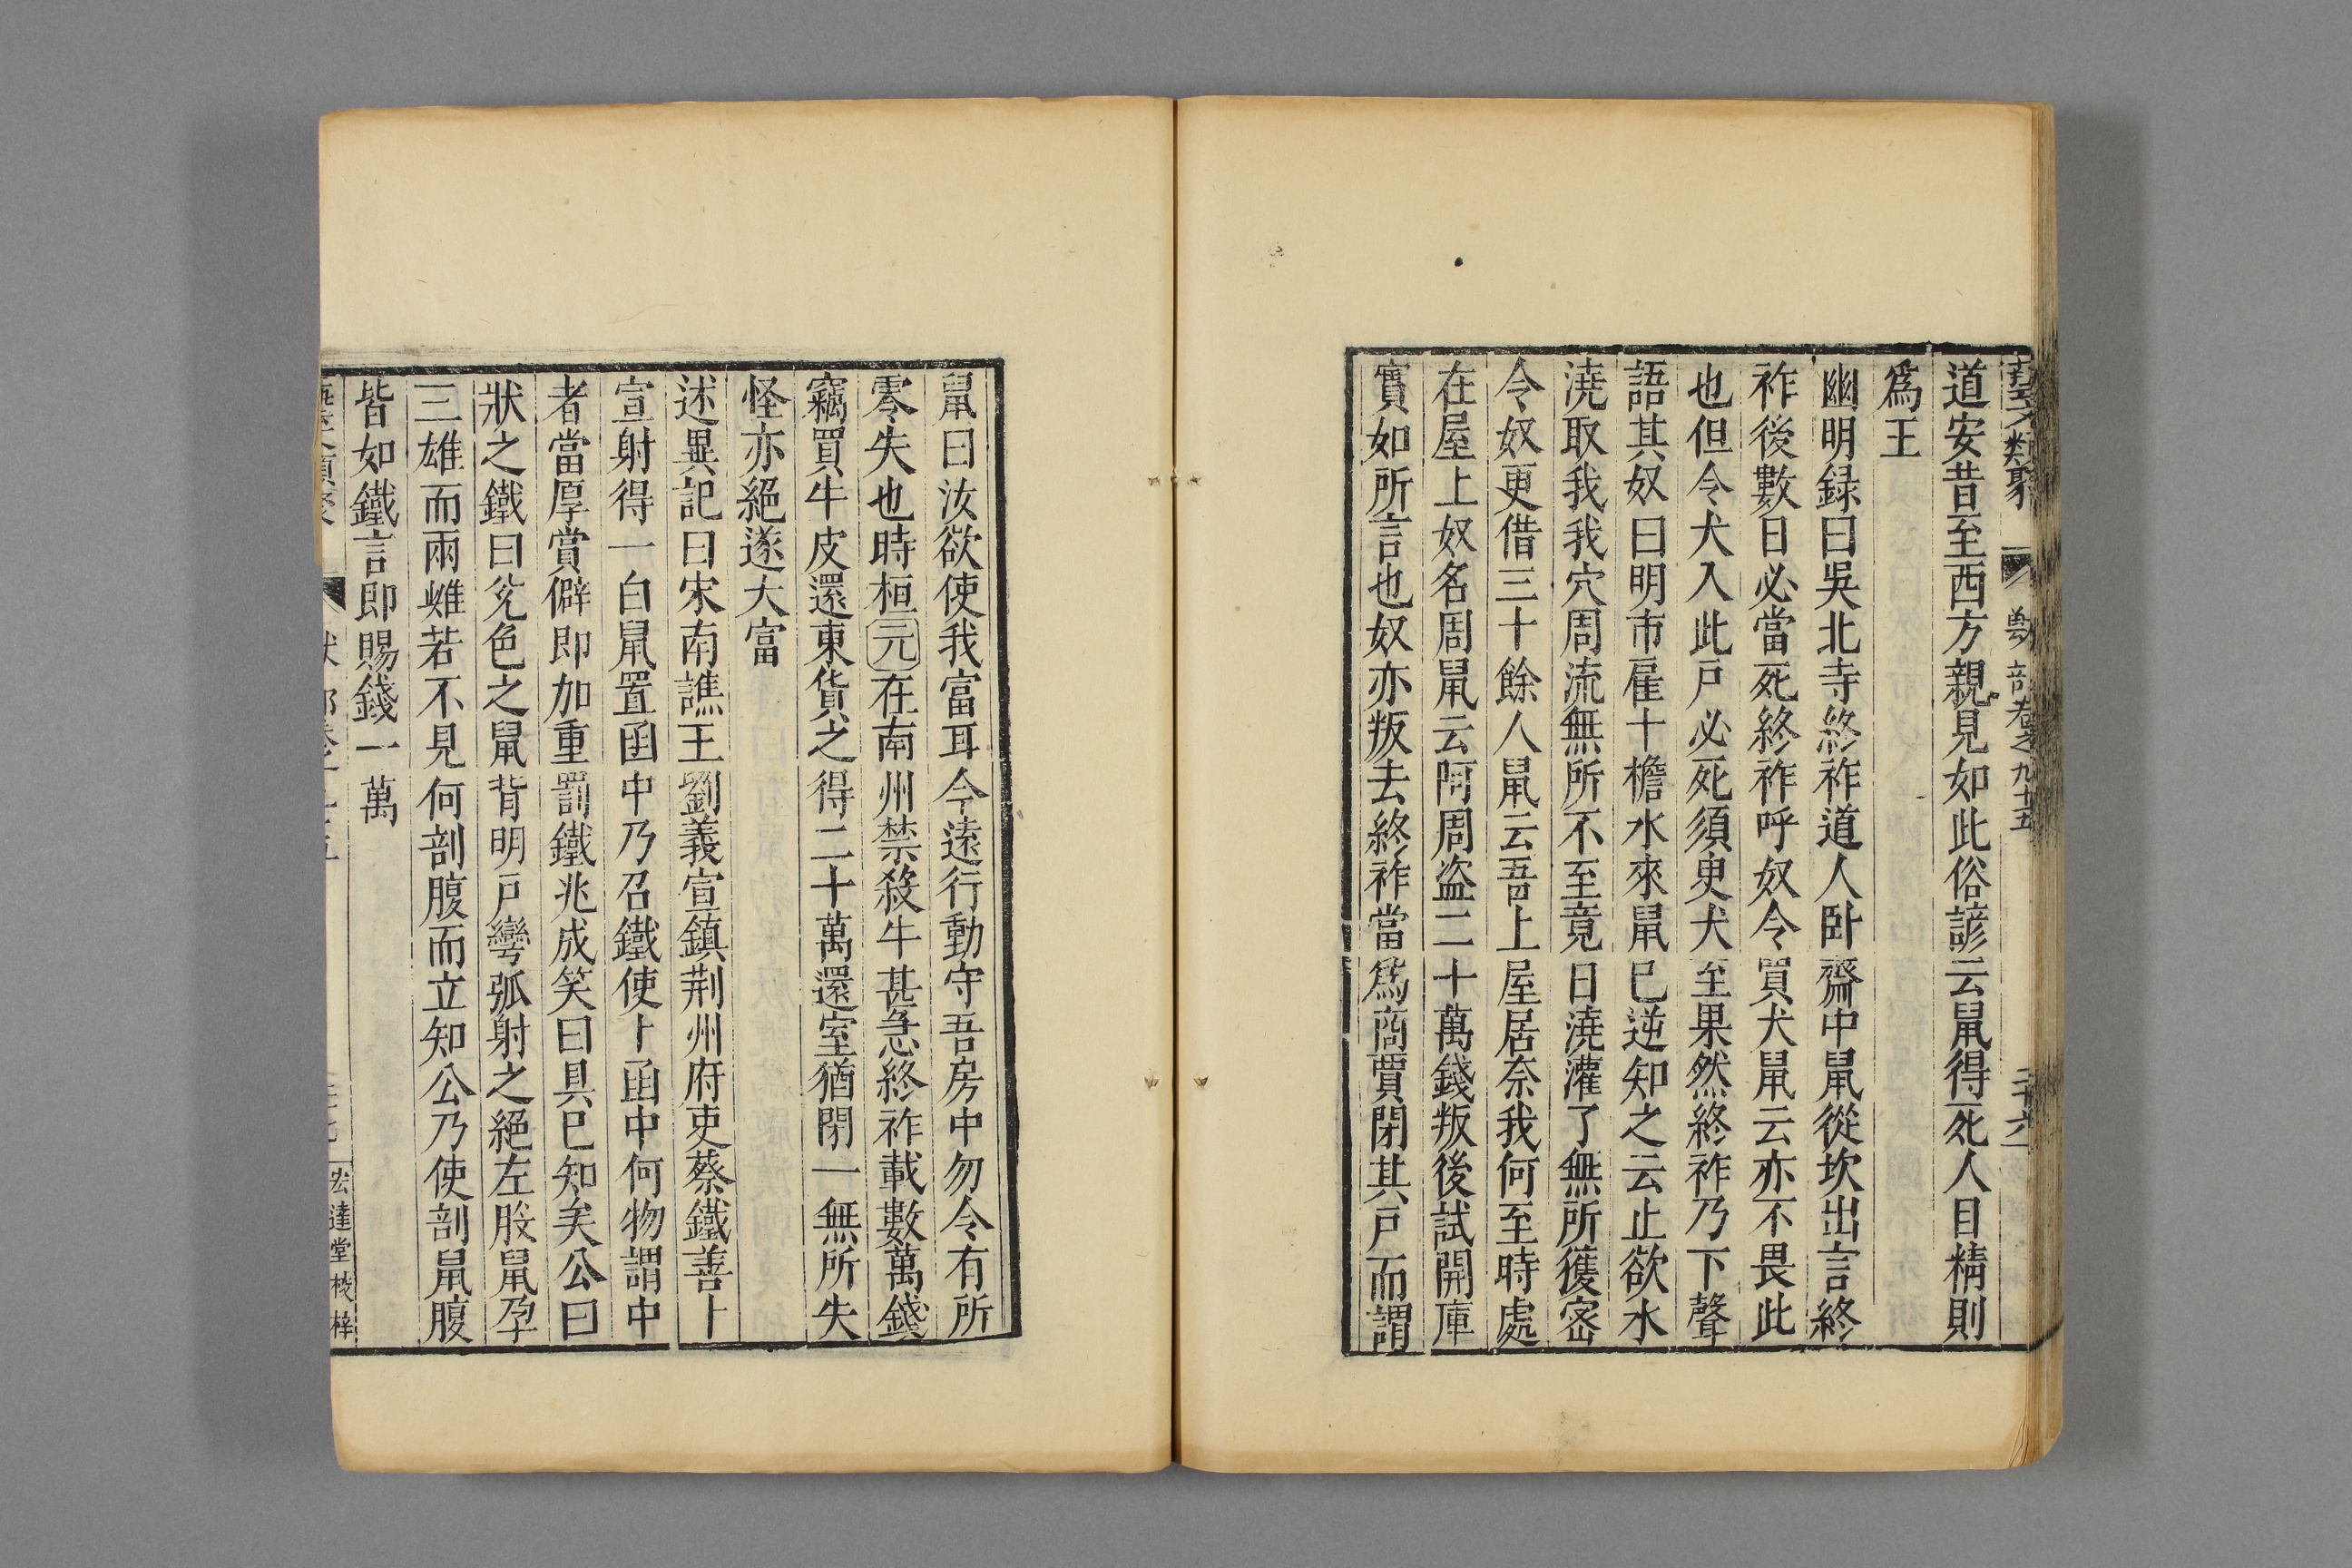 藝文類聚 獸部卷之九十五 二十六
道安昔至西方親見如此俗諺云鼠得死人目精則
爲王
幽明録曰吳北寺終祚道人臥齋中鼠從坎出言終
祚後數日必當死終祚呼奴令買犬鼠云亦不畏此
也但令犬入此戸必死須臾犬至果然終祚乃下聲
語其奴曰明市雇十檐水來鼠已逆知之云止欲水
澆取我我穴周流無所不至竟日澆灌了無所獲密
令奴更借三十餘人鼠云吾上屋居奈我何至時處
在屋上奴名周鼠云阿周盜二十萬錢叛後試開庫
實如所言也奴亦叛去終祚當爲商賈閉其戸而謂
鼠曰汝欲使我富耳今遠行動守吾房中勿令有所
零失也時桓元在南州禁殺牛甚急終祚載數萬錢
竊買牛皮還東貨之得二十萬還室猶閉一無所失
怪亦絕遂大富
述異記曰宋南譙王劉義宣鎮荆州府吏蔡鐵善卜
宣射得一白鼠置函中乃召鐵使卜函中何物謂中
者當厚賞僻即加重罰鐵兆成笑曰具已知矣公曰
狀之鐵曰兊色之鼠背明戸彎弧射之絕左股鼠孕
三雄而兩雌若不見何剖腹而立知公乃使剖鼠腹
皆如鐵言即賜錢一萬
宏達堂校梓